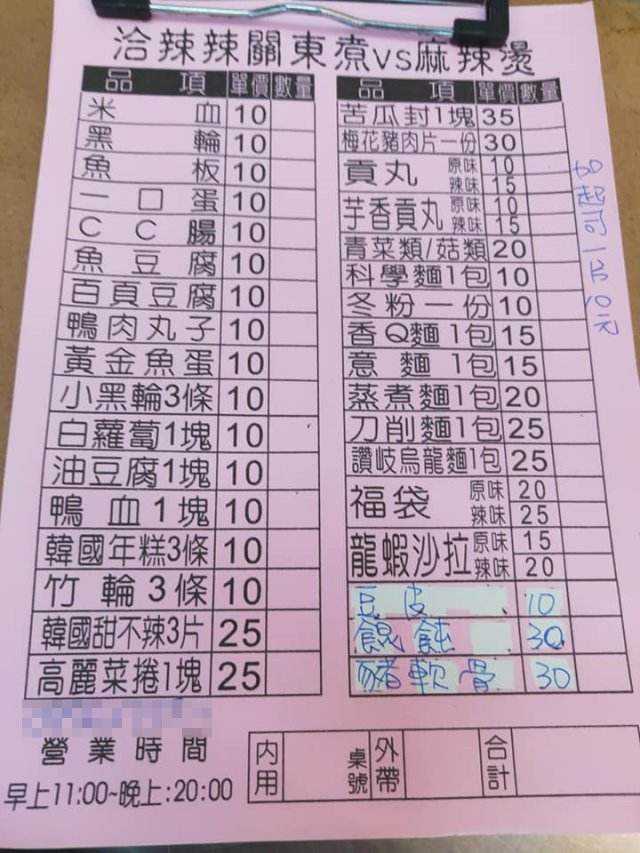 洽辣辣關東煮VS麻辣燙
品項 單價 數量
米血 10
黑輪 10
魚板 10
一口蛋 10
CC腸 10
魚豆腐 10
百頁豆腐 10
鴨肉丸子 10
黃金魚蛋 10
小黑輪3條 10
白蘿蔔1塊 10
油豆腐1塊 10
鴨血1塊 10
韓國年糕3條 10
竹輪3條 10
韓國甜不辣3片 25
高麗菜捲1塊 25
品項 單價 數量
苦瓜封1塊 35
梅花豬肉片一份 30
貢丸 原味 10
辣味 15
芋香貢丸 原味 10
辣味 15
青菜類/菇類 20
科學麵1包 10
冬粉一份 10
香Q麵1包 15
意麵1包 15
蒸煮麵1包 20
刀削麵1包 25
讚岐烏龍麵1包 25
福袋 原味 20
辣味 25
龍蝦沙拉 原味 15
辣味 20
豆皮 10
餛飩 30
豬軟骨 30
加起司1片10元
營業時間
早上11:00~晚上:20:00
內用 桌號 外帶 合計